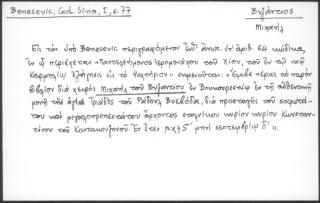 Benesevic, Cod. Sina, I, σ. 77
Βυζάντιος
Μιχαήλ
Εἰς τὸν ὑπὸ Benesevic περιγραφόμενον ὑπ' ἀριθ. κώδικα,
ἐν ᾧ περιέχεται "Παντελεήμονος ἱερομονάχου τοῦ Χίου, τοῦ ἐν τῷ ναῷ
ἐξήγησις εἰς τὸ Ψαλτήριον" σημειοῦται: "Ἔλαβε πέρας τὸ παρὸν
βιβλίον διὰ χειρὸς Μιχαὴλ τοῦ Βυζαντίου ἐν Βουκουρεστίῳ ἐν τῇ αὐθεντικῇ
μονῇ τῆς ἁγίας Τριάδος τοῦ Ῥάδουλ Βοεβόδα, διὰ προσταγῆς τοῦ σοφωτά-
του καὶ μεγαλοπρεπεστάτου ἄρχοντος στολνίκου κυρίου κυρίου Κωνσταν-
τίνου τοῦ Καντακουζηνοῦ. Ἐν ἔτει αχϟς΄ μηνὶ σεπτεμβρίῳ δ΄".